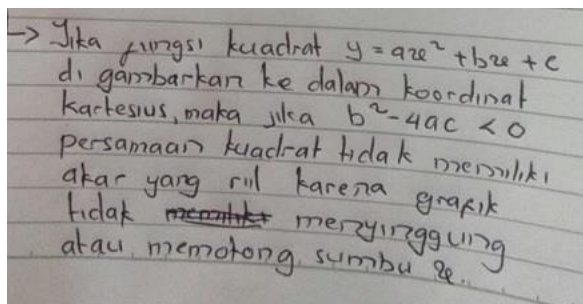 → Jika fungsi kuadrat y = ax² + bx + c
di gambarkan ke dalam koordinat
kartesius, maka jika b² - 4ac < 0
persamaan kuadrat tidak memiliki
akar yang riil karena grafik
tidak memiliki menyinggung
atau memotong sumbu x.